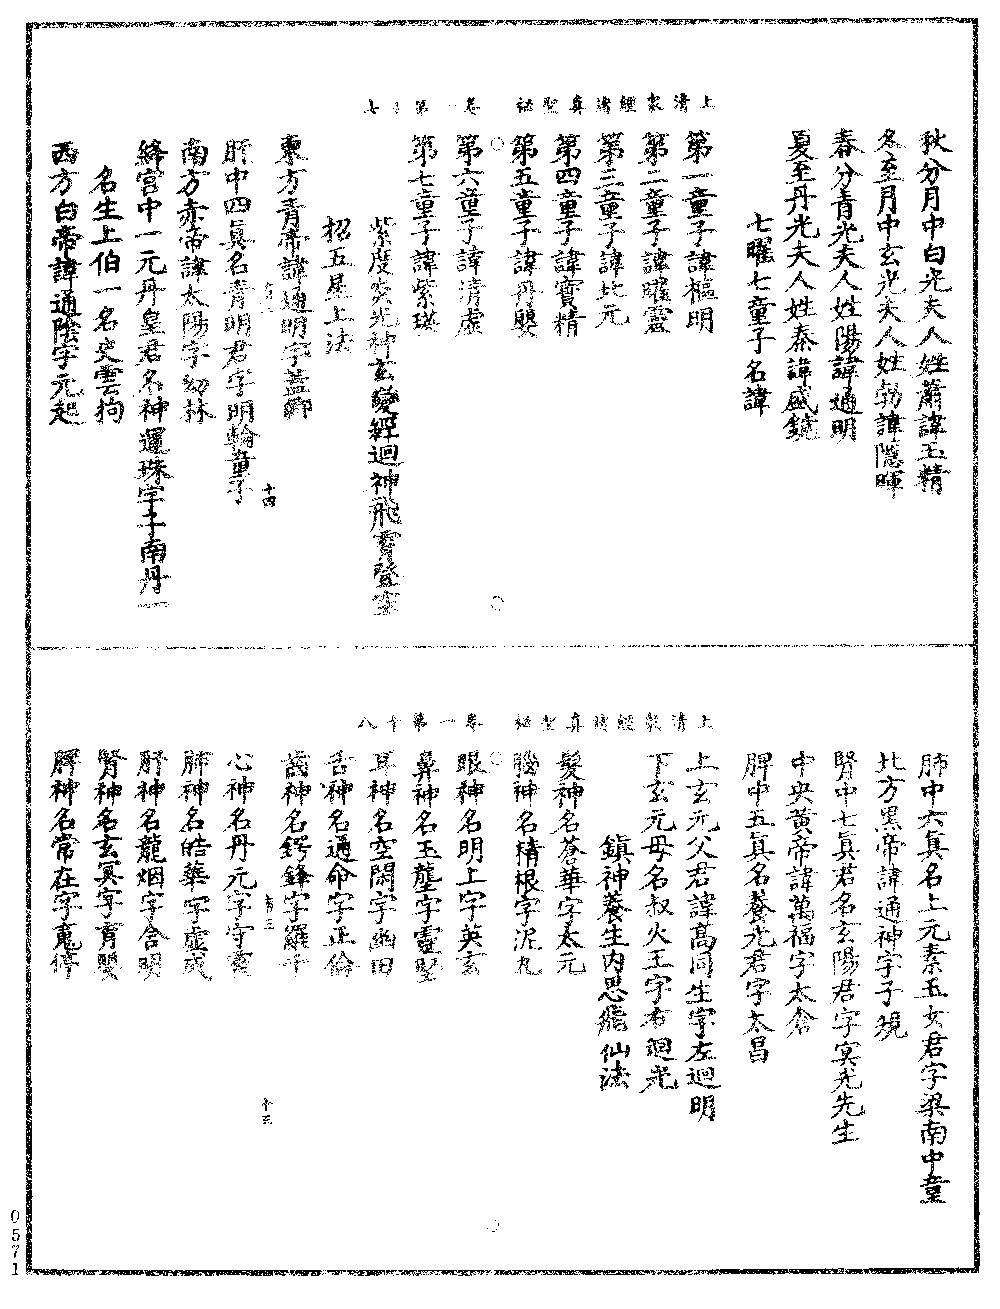 秋分月中白光夫人姓蕭諱玉精
冬至月中玄光夫人姓勃諱隱暉
春分青光夫人姓陽諱通明
夏至丹光夫人姓秦諱盛鏡
七曜七童子名諱
第一童子諱樞明
第二童子諱曜靈
第三童子諱北元
第四童子諱寶精
第五童子諱丹嬰
上清衆經諸真聖祕 卷一第十七
第六童子諱清虛
第七童子諱紫珙
紫度炎光神玄變經迴神飛霄登空
招五星上法
東方青帝諱逈明字蓋卿
十四
肝中四眞名青明君字明輪童子
南方赤帝諱太陽字幼林
絳宮中一元丹皇君名神運珠字子南丹一
名生上伯一名史雲拘
西方白帝諱通陰字元起
肺中六眞名上元素玉女君字梁南中童
北方黑帝諱通神字子規
腎中七眞君名玄陽君字冥光先生
中央黃帝諱萬福字太倉
脾中五眞名養光君字太昌
上玄元父君諱高同生字左迴明
下玄元母名叔火王字右迴光
鎮神養生內思飛仙法
髮神名蒼華字太元
腦神名精根字泥丸
上清衆經諸真聖祕 卷一第十八
眼神名明上字英玄
鼻神名玉壟字靈堅
耳神名空閑字幽田
舌神名通命字正倫
齒神名崿鋒字羅千
十五
心神名丹元字守靈
肺神名皓華字虛成
肝神名龍烟字含明
腎神名玄冥字育嬰
脾神名常在字魂停
0571